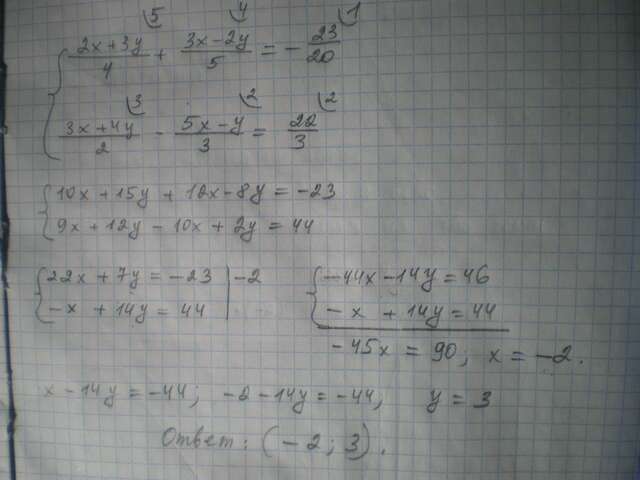 5 4 1
{ (2x+3y)/4 + (3x-2y)/5 = -23/20
3 2 2
{ (3x+4y)/2 - (5x-y)/3 = 22/3
{ 10x+15y+12x-8y=-23
{ 9x+12y-10x+2y=44
{ 22x+7y=-23 | -2
{ -x+14y=44
{ -44x-14y=46
{ -x+14y=44
-45x=90; x=-2.
x-14y=-44; -2-14y=-44; y=3
Ответ: (-2; 3).